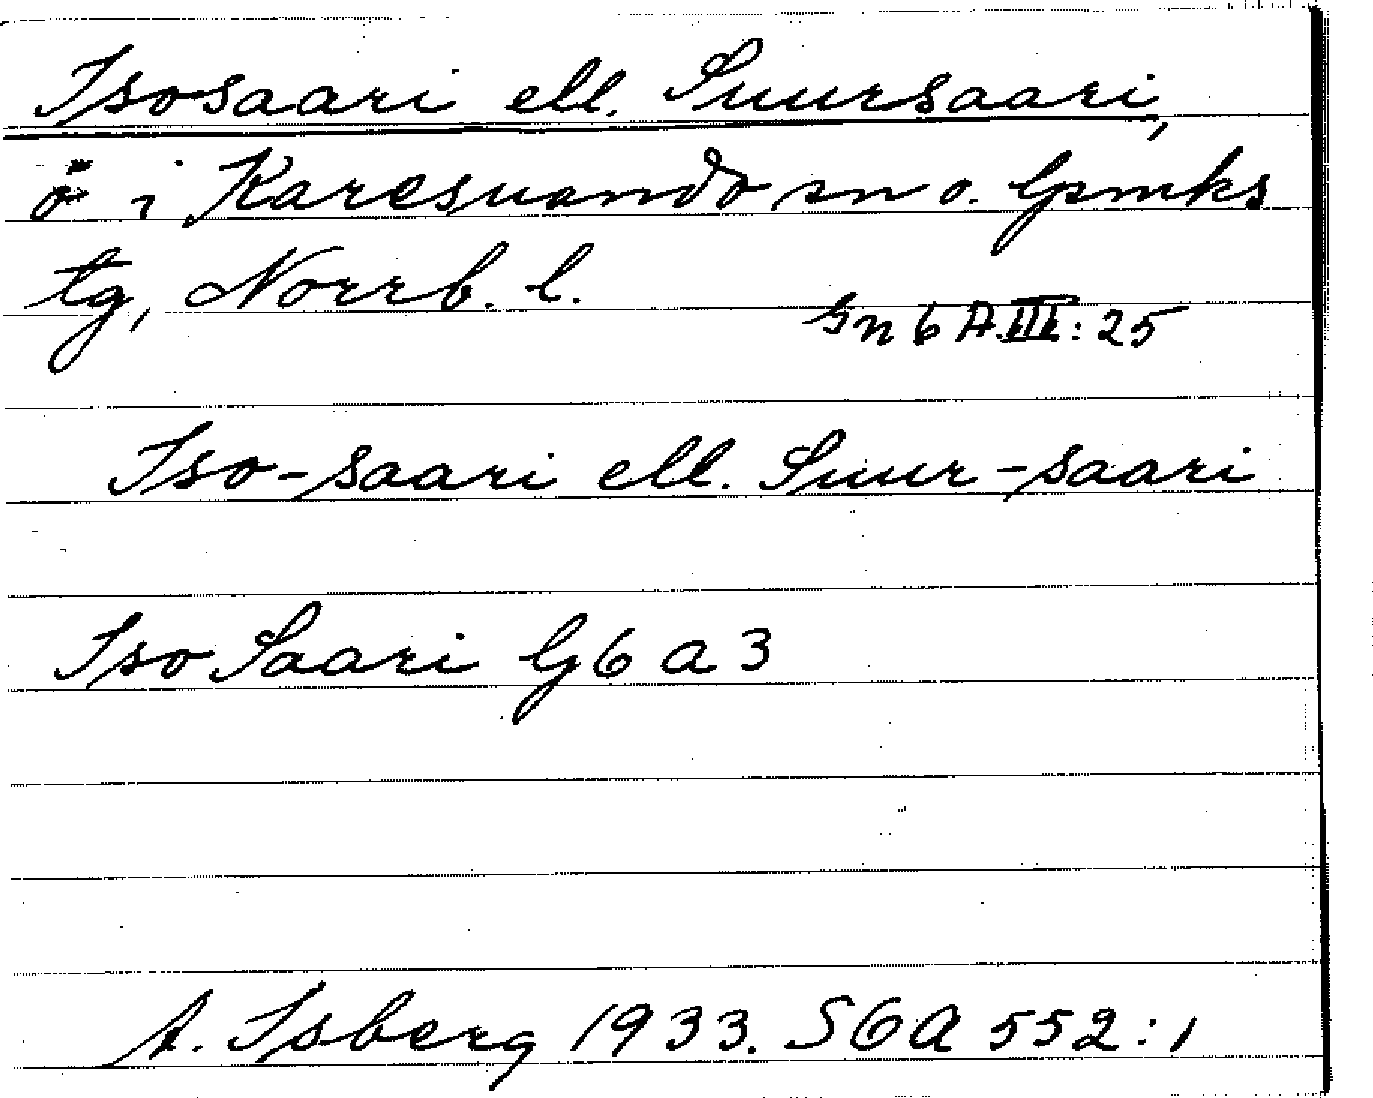 Isosaari ell. Suursaari,
ö i Karesuando sn o. lpmks
tg, Norrb. l.
Gn 6 A.III: 25
Iso-saari ell. Suur-saari
Iso Saari G 6 a 3
A. Isberg 1933. SGA 552:1